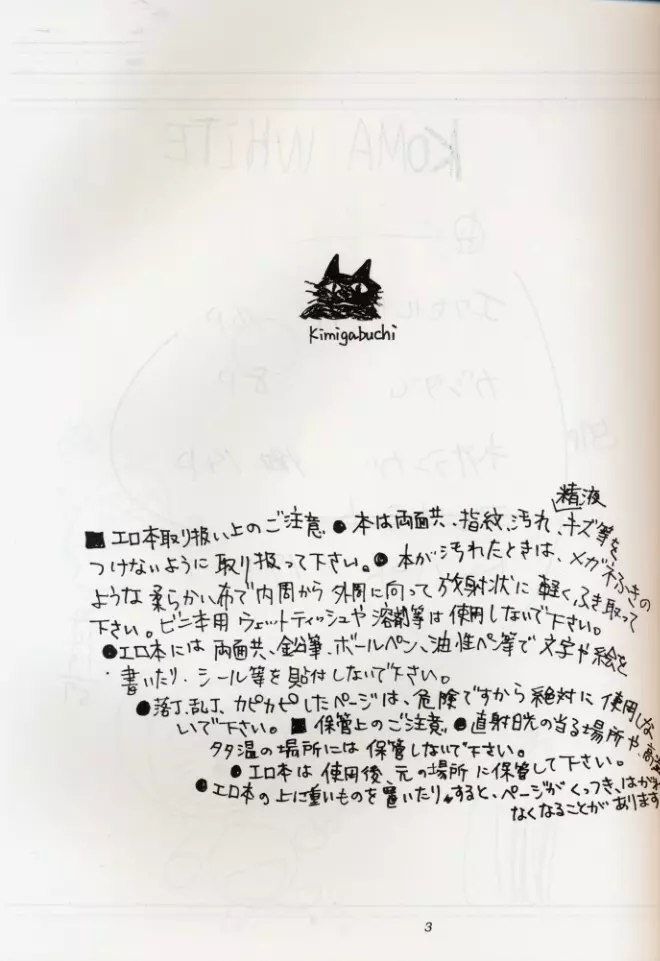 KOMA WHITE
Kimigabuchi
精液
■エロ本取り扱い上のご注意 ●本は両面共、指紋、汚れ、キズ等を
つけないように取り扱って下さい。●本が汚れたときは、メガネふきの
ような柔らかい布で内周から外周に向って放射状に軽くふき取って
下さい。ビニ本用ウェットティッシュや溶剤等は使用しないで下さい。
●エロ本には両面共、鉛筆、ボールペン、油性ペン等で文字や絵を
書いたり、シール等を貼付しないで下さい。
●落丁、乱丁、カピカピしたページは、危険ですから絶対に使用しな
いで下さい。■保管上のご注意 ●直射日光の当る場所や、高温
多湿の場所には保管しないで下さい。
●エロ本は使用後、元の場所に保管して下さい。
●エロ本の上に重いものを置いたりすると、ページがくっつき、はがれ
なくなることがあります
3